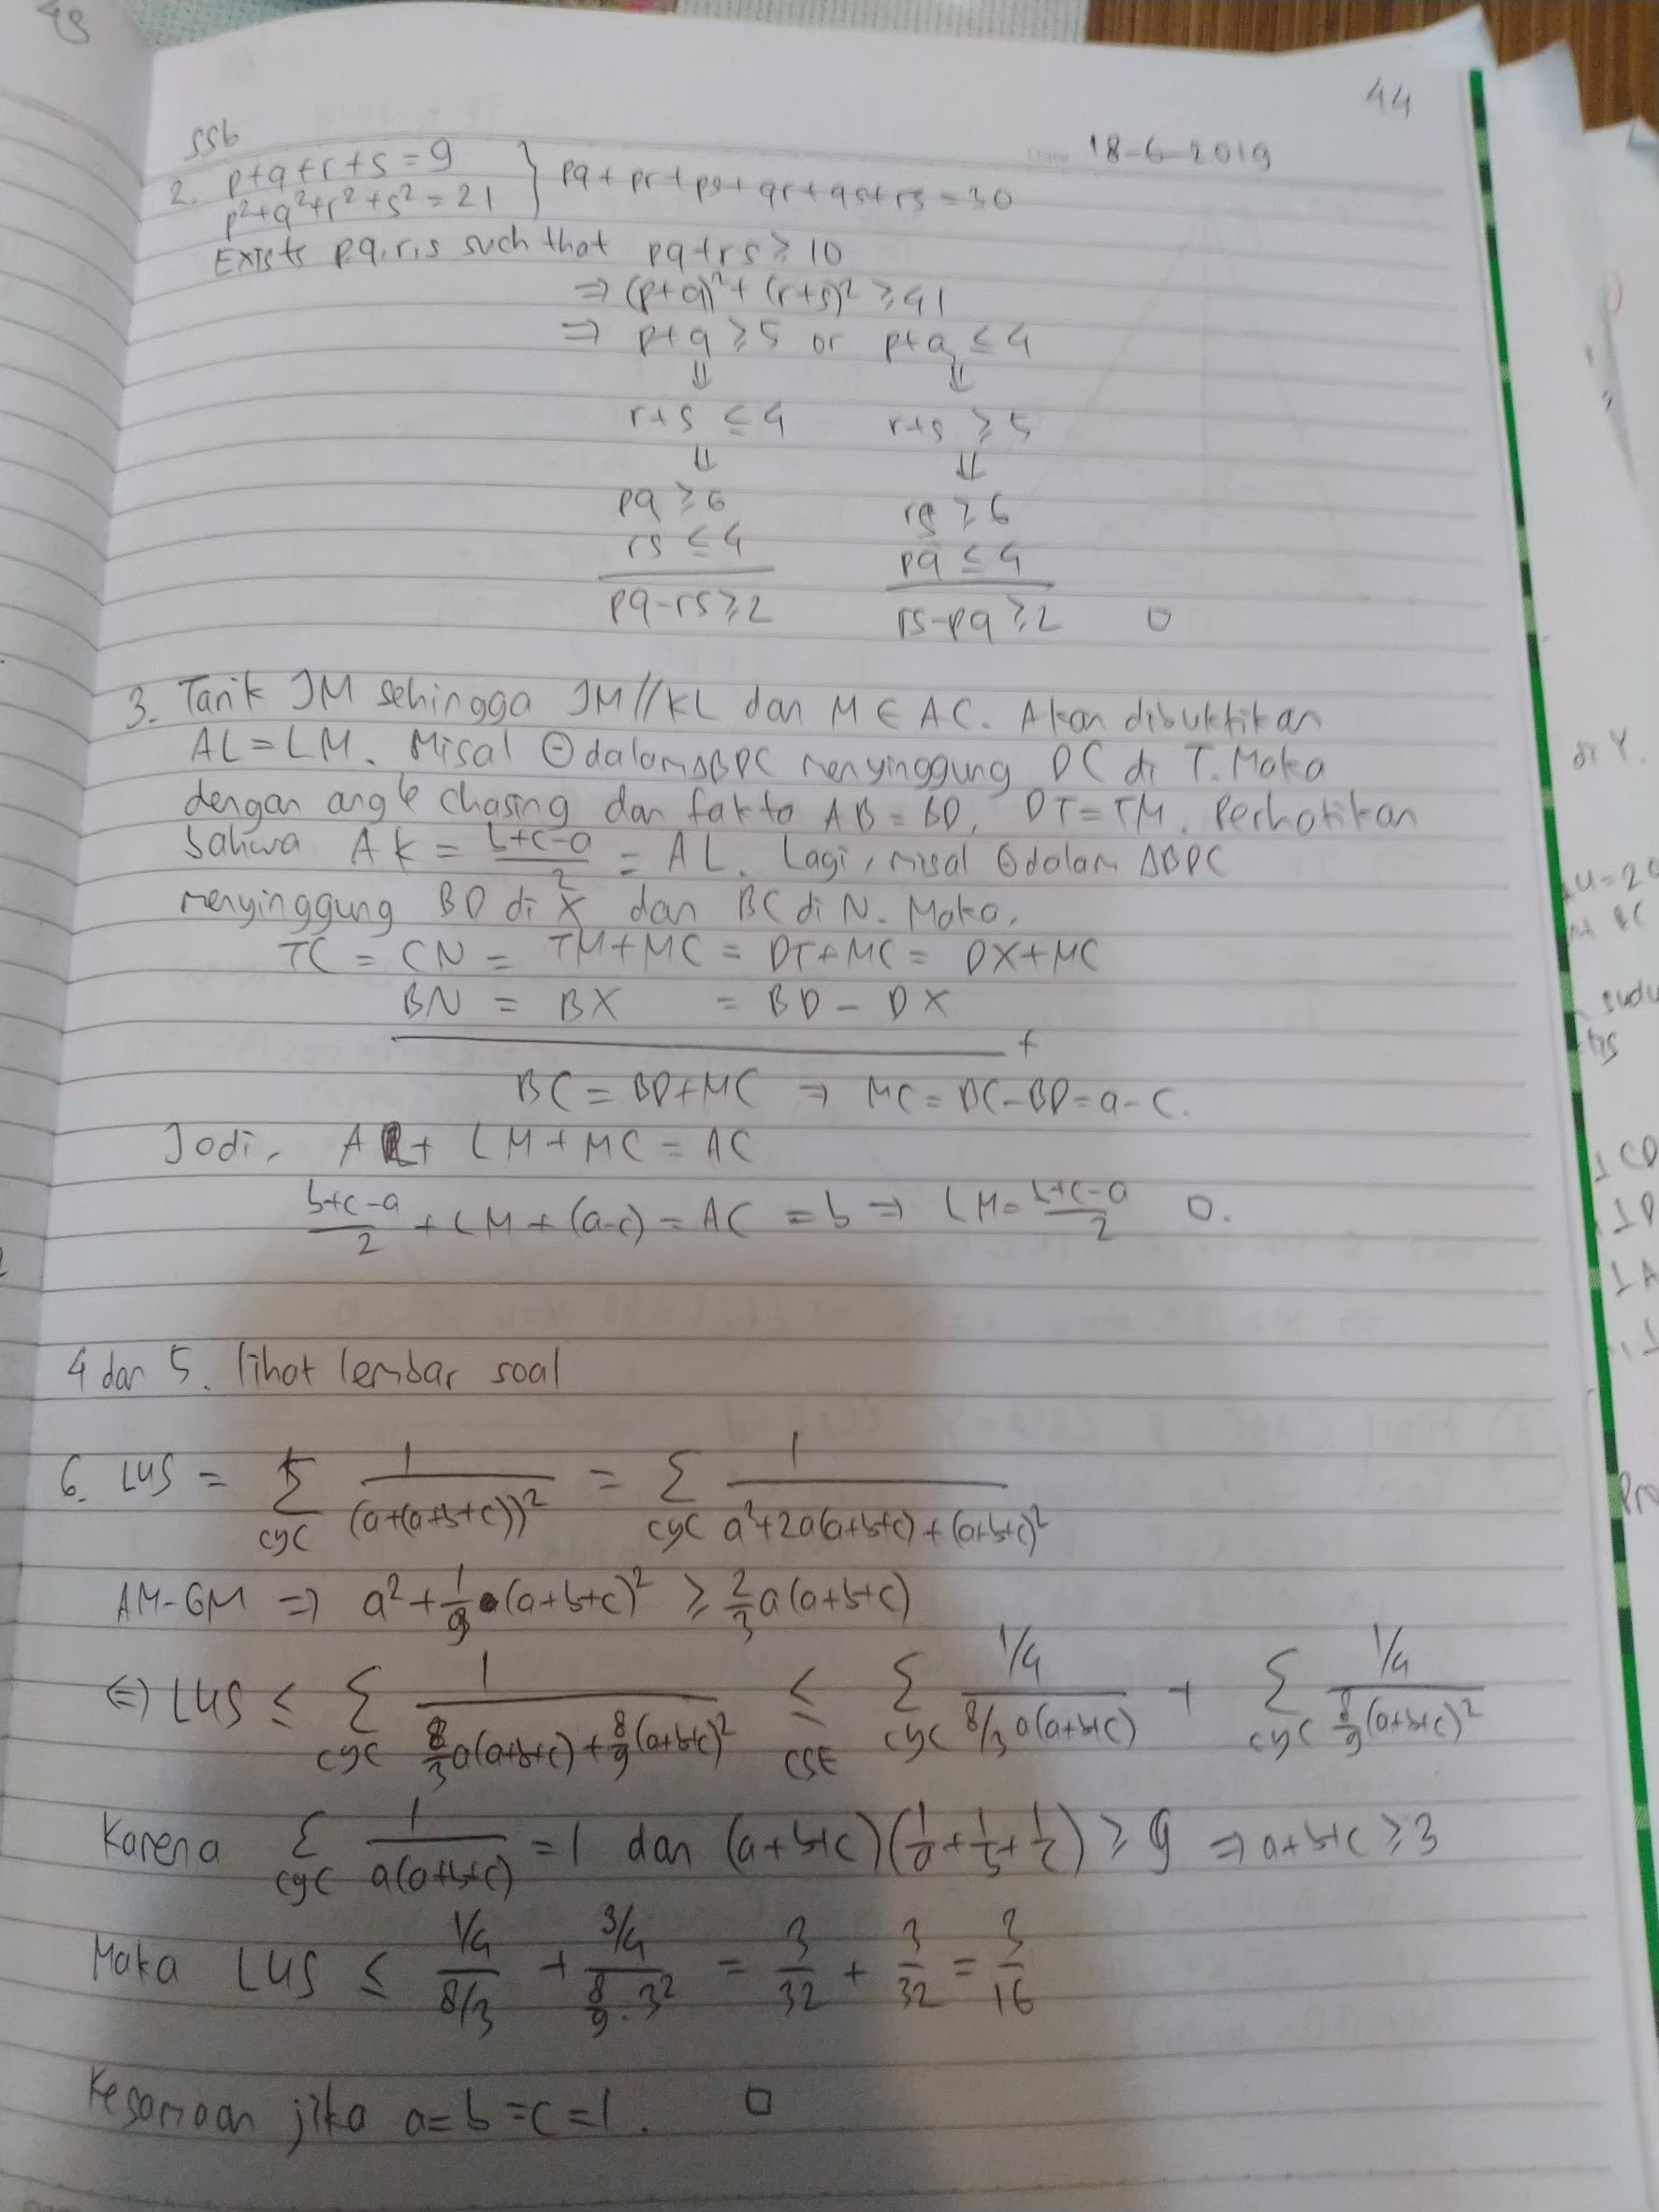 44
18-6-2019
SSb
2. p+q+r+s=9
p²+q²+r²+s²=21 } pq+pr+ps+qr+qs+rs=30
Exists p,q,r,s such that pq+rs ≥ 10
⇒ (p+q)²+(r+s)² ≥ 41
⇒ p+q ≥ 5 or p+q ≤ 4
⇓ ⇓
r+s ≤ 4 r+s ≥ 5
⇓ ⇓
pq ≥ 6 rs ≥ 6
rs ≤ 4 pq ≤ 4
pq-rs ≥ 2 rs-pq ≥ 2 □
3. Tarik JM sehingga JM//KL dan M ∈ AC. Akan dibuktikan
AL=LM. Misal ⊙dalam ΔBDC menyinggung DC di T. Maka
dengan angle chasing dan fakta AB=BD, DT=TM. Perhatikan
bahwa AK = (b+c-a)/2 = AL. Lagi, misal ⊙dalam ΔBDC
menyinggung BD di X dan BC di N. Maka,
TC = CN = TM+MC = DT+MC = DX+MC
BN = BX = BD - DX
+
BC = BD+MC ⇒ MC = BC-BD = a-c.
Jadi, AL + LM + MC = AC
(b+c-a)/2 + LM + (a-c) = AC = b ⇒ LM = (b+c-a)/2 □.
4 dan 5. lihat lembar soal
6. LHS = Σ cyc 1/(a+(a+b+c))² = Σ cyc 1/(a²+2a(a+b+c)+(a+b+c)²)
AM-GM ⇒ a²+1/9(a+b+c)² ≥ 2/3 a(a+b+c)
⇔ LHS ≤ Σ cyc 1/(8/3 a(a+b+c)+8/9(a+b+c)²) ≤ CSE Σ cyc (1/4)/(8/3 a(a+b+c)) + Σ cyc (1/4)/(8/9(a+b+c)²)
Karena Σ cyc 1/(a(a+b+c)) = 1 dan (a+b+c)(1/a+1/b+1/c) ≥ 9 ⇒ a+b+c ≥ 3
Maka LHS ≤ (1/4)/(8/3) + (3/4)/(8/9 · 3²) = 3/32 + 3/32 = 3/16
Kesamaan jika a=b=c=1. □